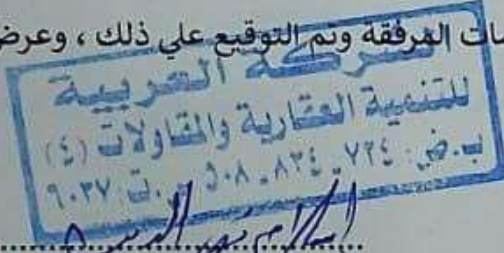 ات المرفقة وتم التوقيع علي ذلك ، وعرض
شركة العربية
للتنمية العقارية والمقاولات (٤)
ب.ض: ٧٢٤ - ٨٣٤ - ٥٠٨ س.ت: ٩٠٣٧
إسلام